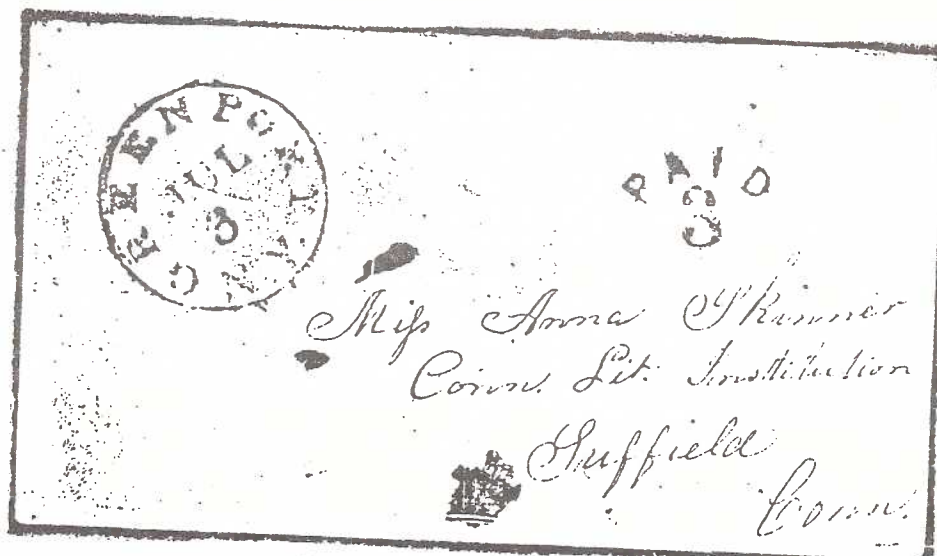 GREENPORT N.Y.
JUL
3
PAID
3
Miss Anna Skinner
Conn. Lit. Institution
Suffield
Conn.